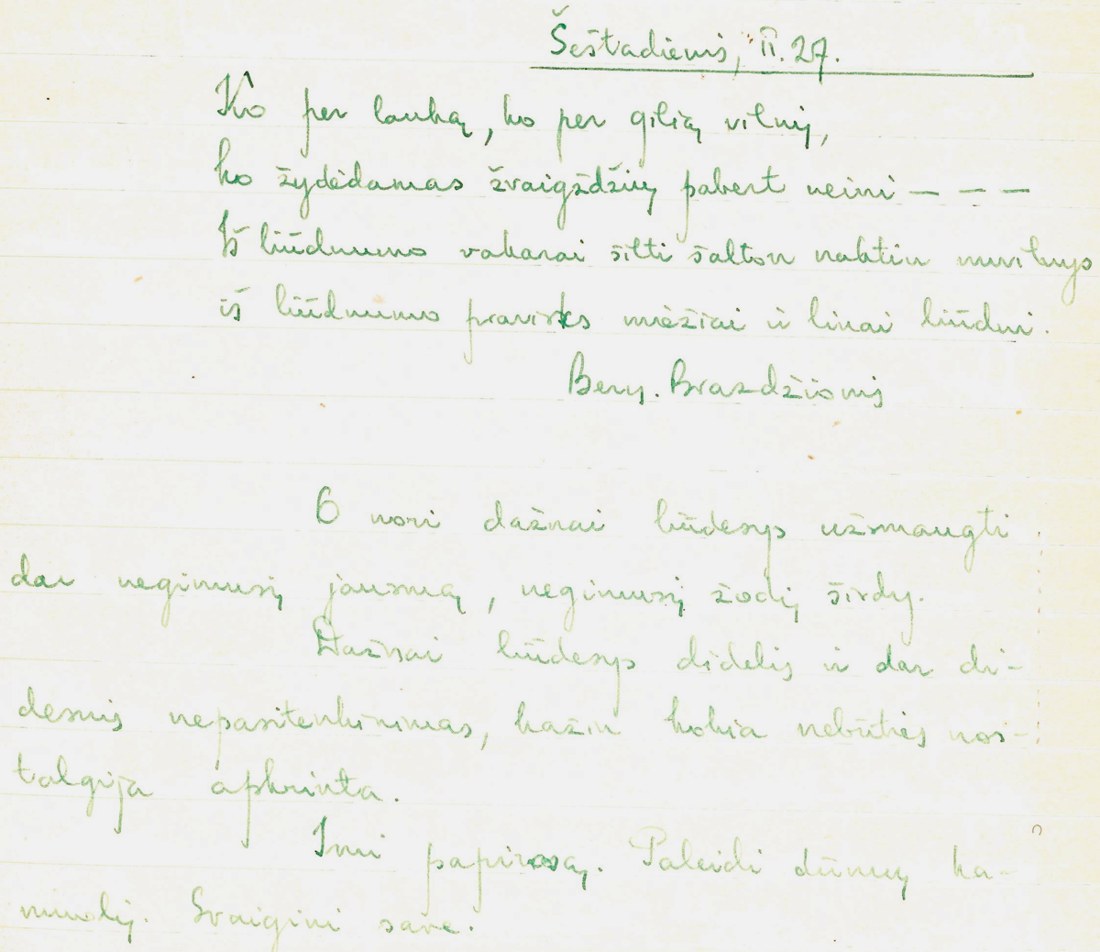 Šeštadienis, II. 27.
Ko per lauką, ko per gilią vilnį,
ko žydėdamas žvaigždžių pabert neini — — —
Iš liūdnumo vakarai šilti šalton naktin nuvilnys
iš liūdnumo pravirks miežiai ir linai liūdni.
Bern. Brazdžionis
O nori dažnai liūdesys užsmaugti
dar negimusį jausmą, negimusį žodį širdy.
Dažnai liūdesys didelis ir dar di-
desnis nepasitenkinimas, kažin kokia nebūties nos-
talgija apkrinta.
Imi papirosą. Paleidi dūmų ka-
muolį. Svaigini save.